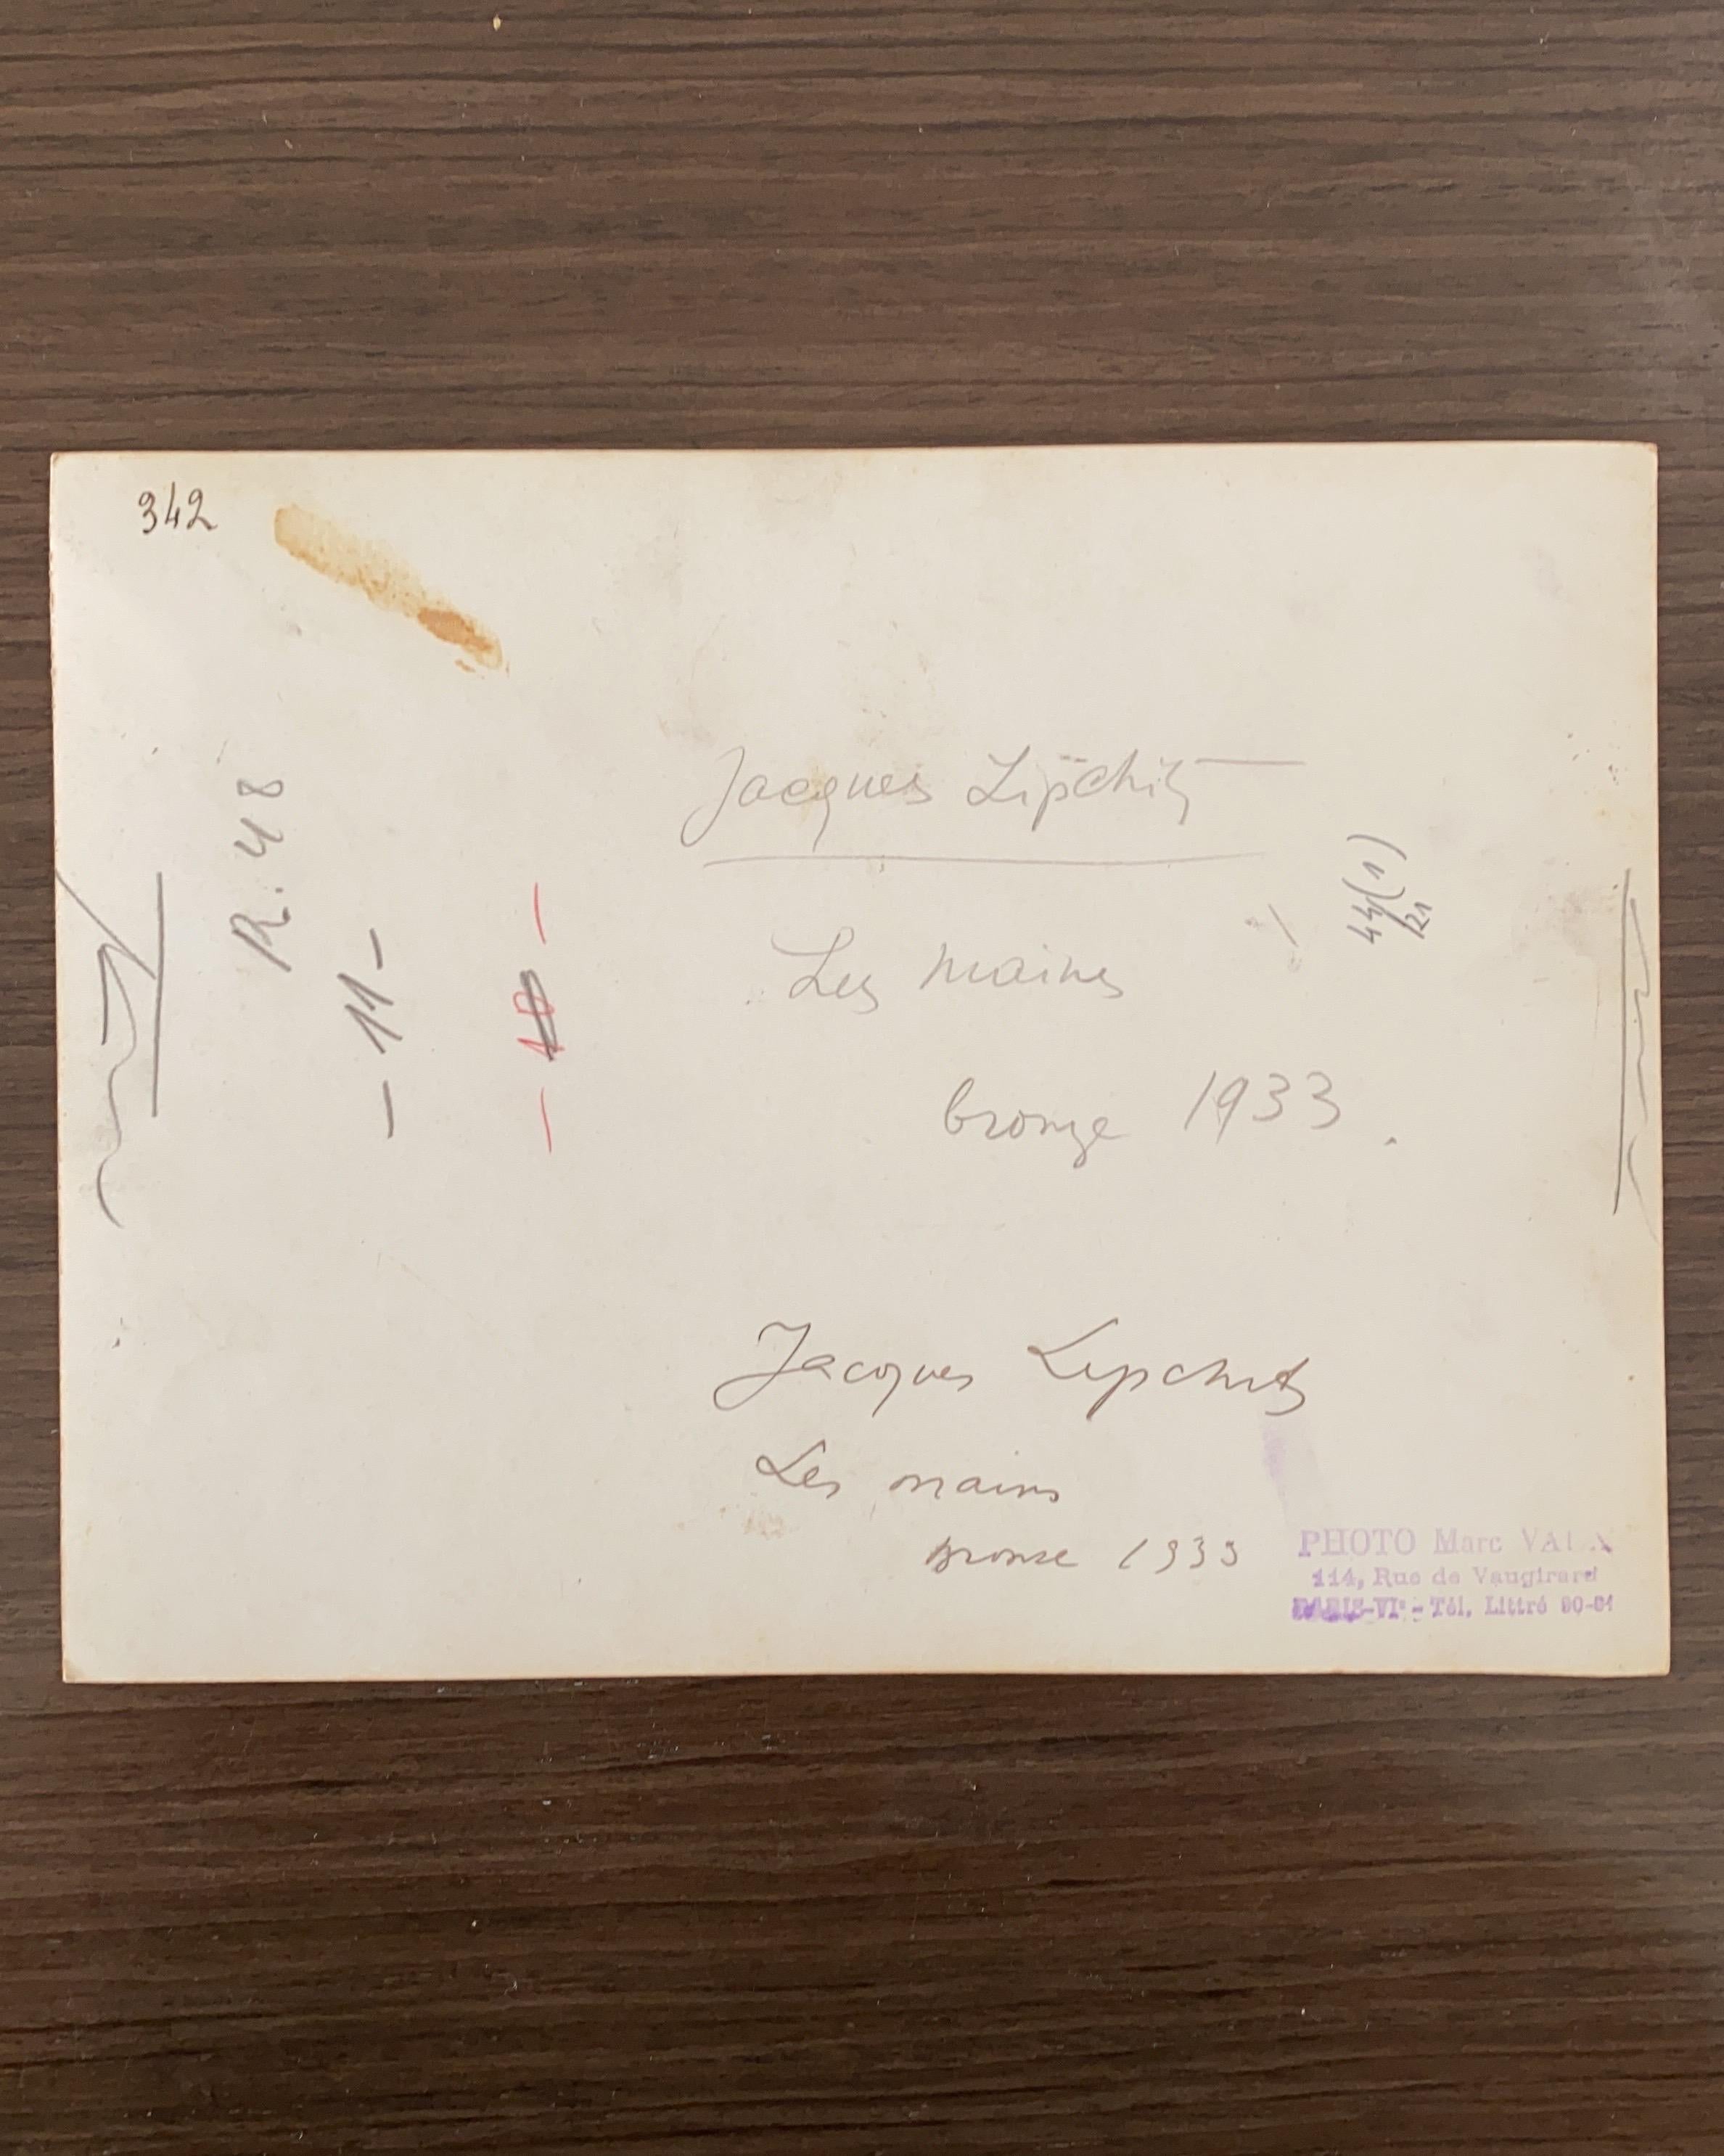 342
R. 48
- 11 -
- 10 -
Jacques Lipchitz
Les mains
bronze 1933.
44(1)
/21
Jacques Lipchitz
Les mains
bronze 1933
PHOTO Marc
114, Rue de Vaugirard
PARIS-VIe - Tél. Littré